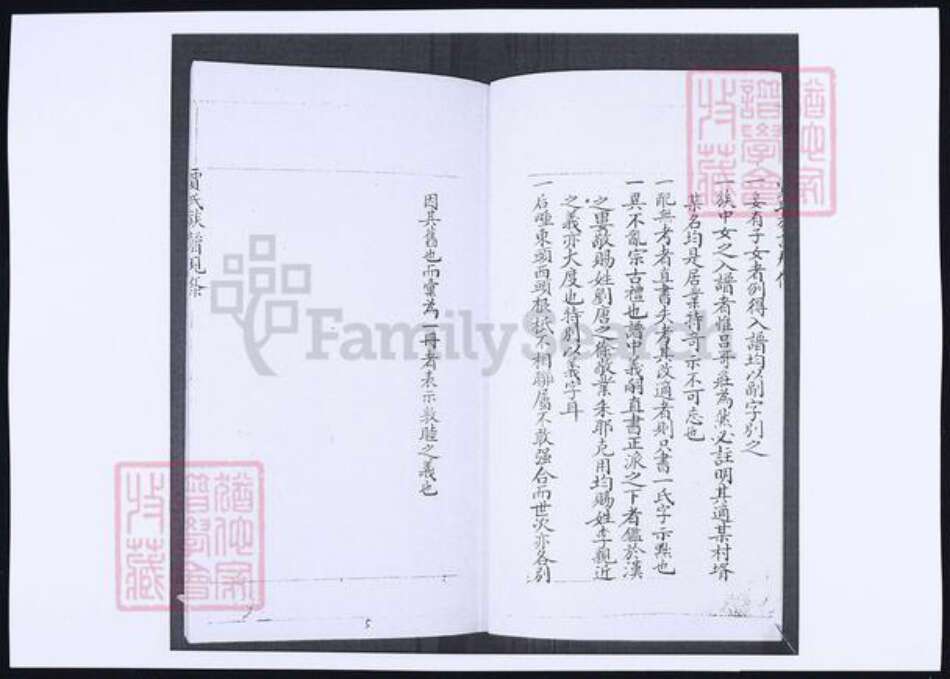 一妾有子女者例得入譜均以副字別之
一族中女之入譜者惟吕哥莊為然必註明其適某村壻
某名均是居業待可示不可忘也
一配無考者直書失考其改適者則只書一氏字示黜也
一異不亂宗古禮也譜中義嗣直書正派之下者鑑於漢
之婁敬賜姓劉唐之徐敬業朱耶克用均賜姓李親近
之義亦大度也特別以義字耳
一后疃東頭西頭根柢不相聯屬不敢强合而世次亦各列
因其舊也而彙為一冊者表示敦睦之義也
賈氏族譜凡條
5
猶他家
譜學會
收藏
猶他家
譜學會
收藏
FamilySearch